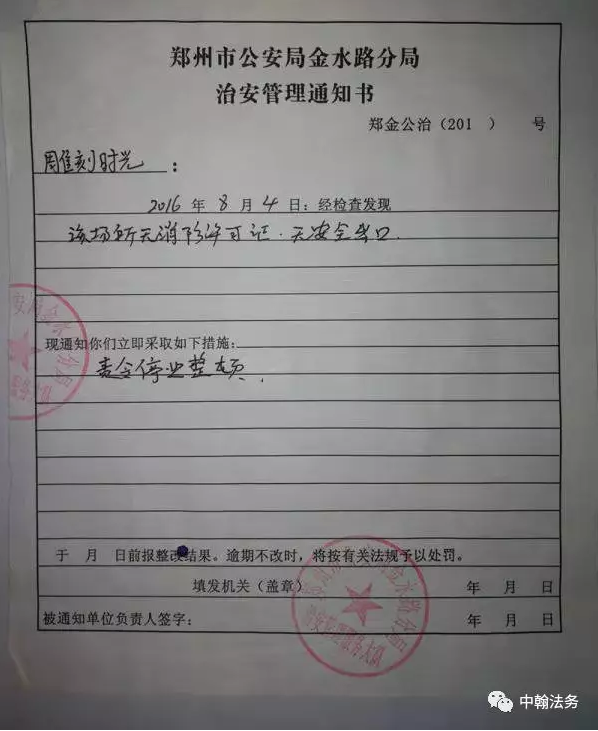 郑州市公安局金水路分局
治安管理通知书
郑金公治（201　）　号
雕刻时光：
2016 年 8 月 4 日：经检查发现
该场所无消防许可证．无安全出口．
现通知你们立即采取如下措施：
责令停业整顿．
于　月　日前报整改结果。逾期不改时，将按有关法规予以处罚。
填发机关（盖章）　年　月　日
被通知单位负责人签字：　年　月　日
中翰法务